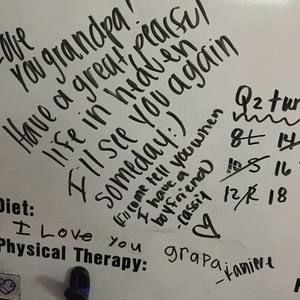 you grandpa!
Have a great peaceful
life in heaven
I'll see you again
someday:)
I come tell you when
I have a
boyfriend)
-cassiy
Q2 turn
8 14
10 S 16
12 R 18
Diet:
I Love you grapa
Physical Therapy: